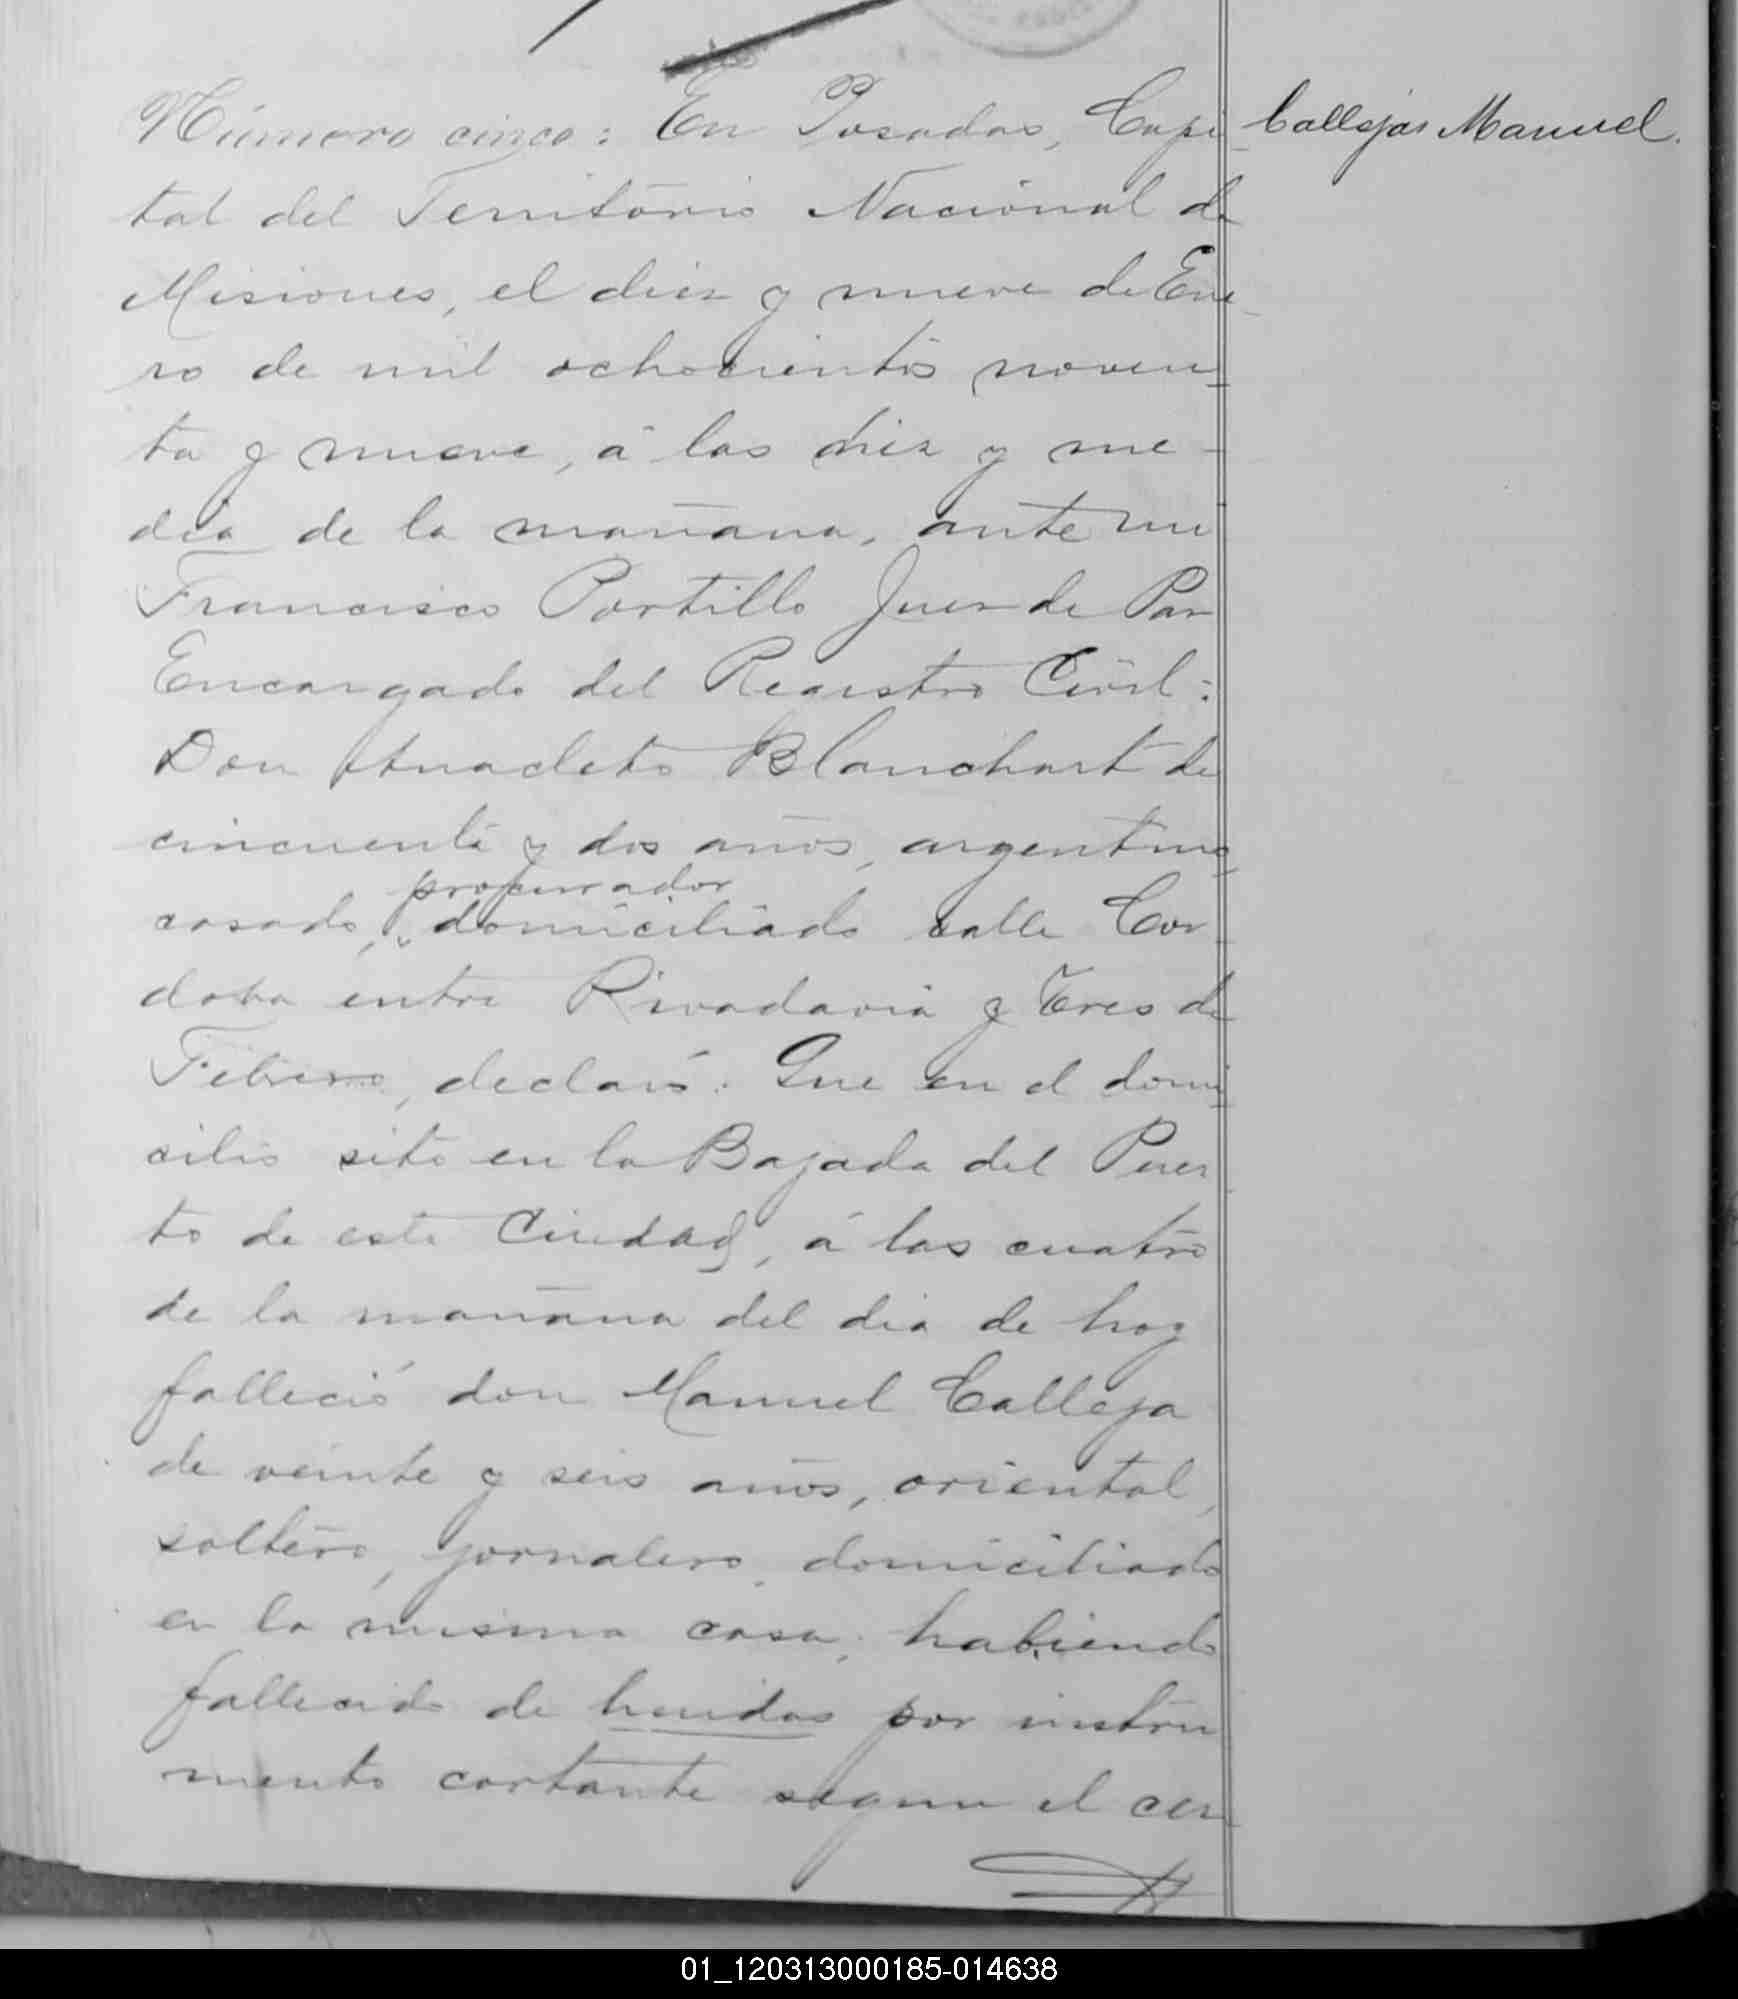 Número cinco: En Posadas, Capi-
tal del Territorio Nacional de
Misiones, el diez y nueve de Ene-
ro de mil ochocientos noven-
ta y nueve, á las diez y me-
dia de la mañana, ante mi
Francisco Portillo Juez de Paz
Encargado del Registro Civil:
Don Anacleto Blanchart de
cincuenta y dos años, argentino,
procurador
casado, domiciliado calle Cor-
doba entre Rivadavia y Tres de
Febrero, declaró: Que en el domi-
cilio sito en la Bajada del Puer-
to de esta Ciudad, á las cuatro
de la mañana del dia de hoy
falleció don Manuel Calleja
de veinte y seis años, oriental,
soltero, jornalero, domiciliado
en la misma casa, habiendo
fallecido de heridas por instru
mento cortante segun el cer-
Callejas Manuel.
01_120313000185-014638